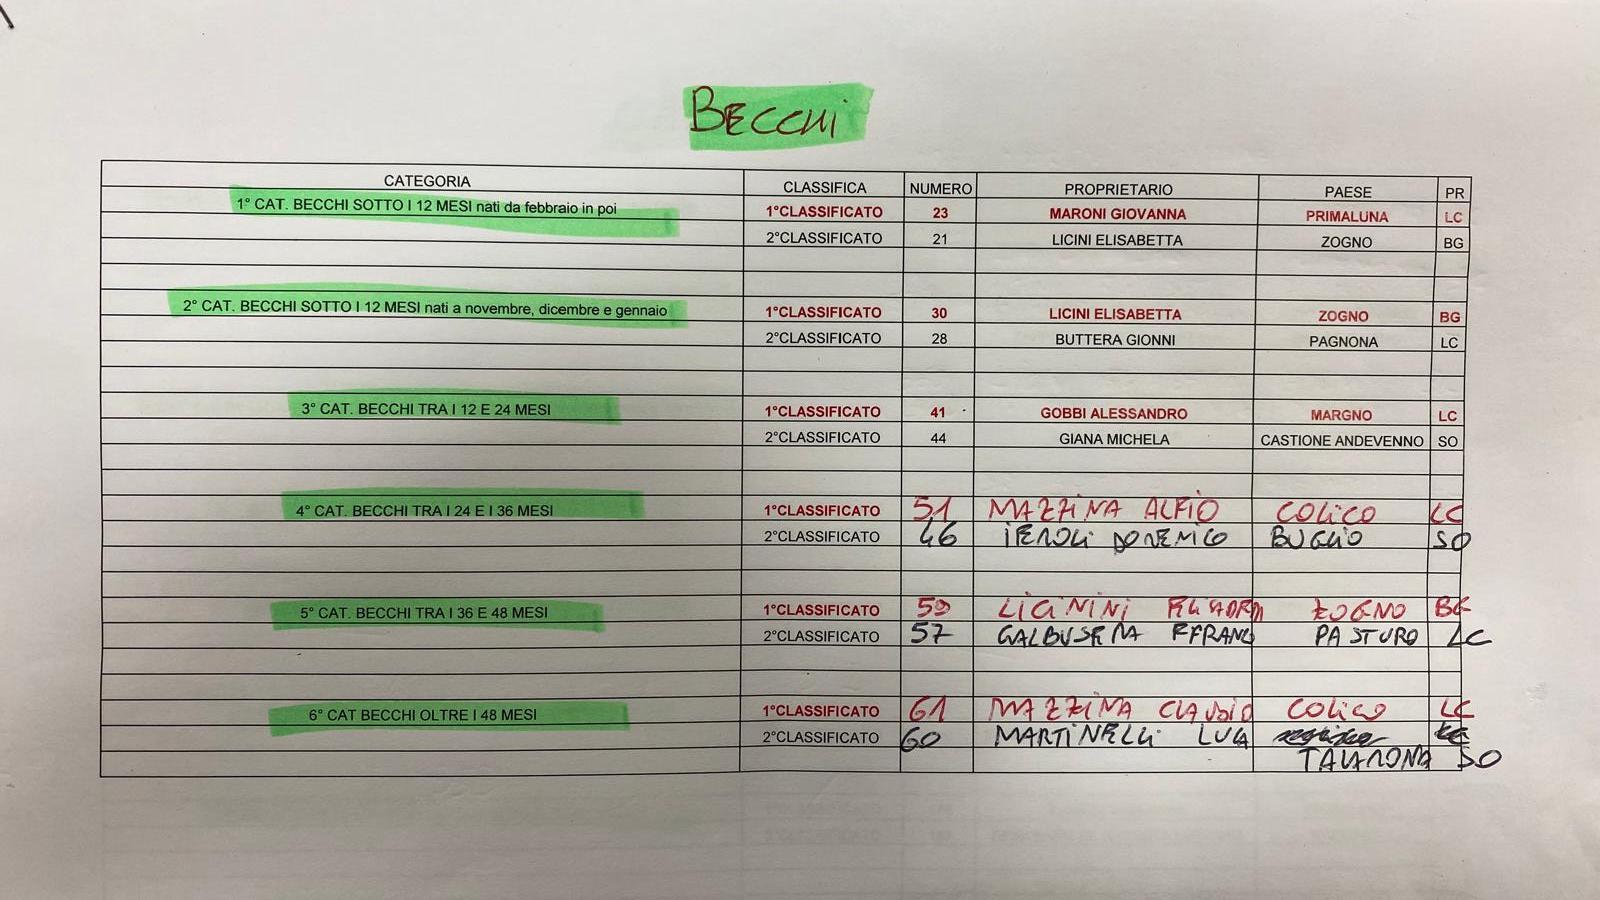 BECCHI
CATEGORIA CLASSIFICA NUMERO PROPRIETARIO PAESE PR
1° CAT. BECCHI SOTTO I 12 MESI nati da febbraio in poi 1°CLASSIFICATO 23 MARONI GIOVANNA PRIMALUNA LC
2°CLASSIFICATO 21 LICINI ELISABETTA ZOGNO BG
2° CAT. BECCHI SOTTO I 12 MESI nati a novembre, dicembre e gennaio 1°CLASSIFICATO 30 LICINI ELISABETTA ZOGNO BG
2°CLASSIFICATO 28 BUTTERA GIONNI PAGNONA LC
3° CAT. BECCHI TRA I 12 E 24 MESI 1°CLASSIFICATO 41 GOBBI ALESSANDRO MARGNO LC
2°CLASSIFICATO 44 GIANA MICHELA CASTIONE ANDEVENNO SO
4° CAT. BECCHI TRA I 24 E I 36 MESI 1°CLASSIFICATO 51 MAZZINA ALFIO COLICO LC
2°CLASSIFICATO 46 BUGLIO SO
5° CAT. BECCHI TRA I 36 E 48 MESI 1°CLASSIFICATO 59 ZOGNO BG
2°CLASSIFICATO 57 GALBUSERA PASTURO LC
6° CAT BECCHI OLTRE I 48 MESI 1°CLASSIFICATO 61 MAZZINA CLAUDIO COLICO LC
2°CLASSIFICATO 60 MARTINELLI LUCA
TALAMONA SO